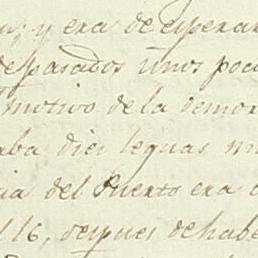 y era de esperar
pasados unos poc
motivo de la demor
aba diez leguas m
cia del Puerto era
16, despues de habe